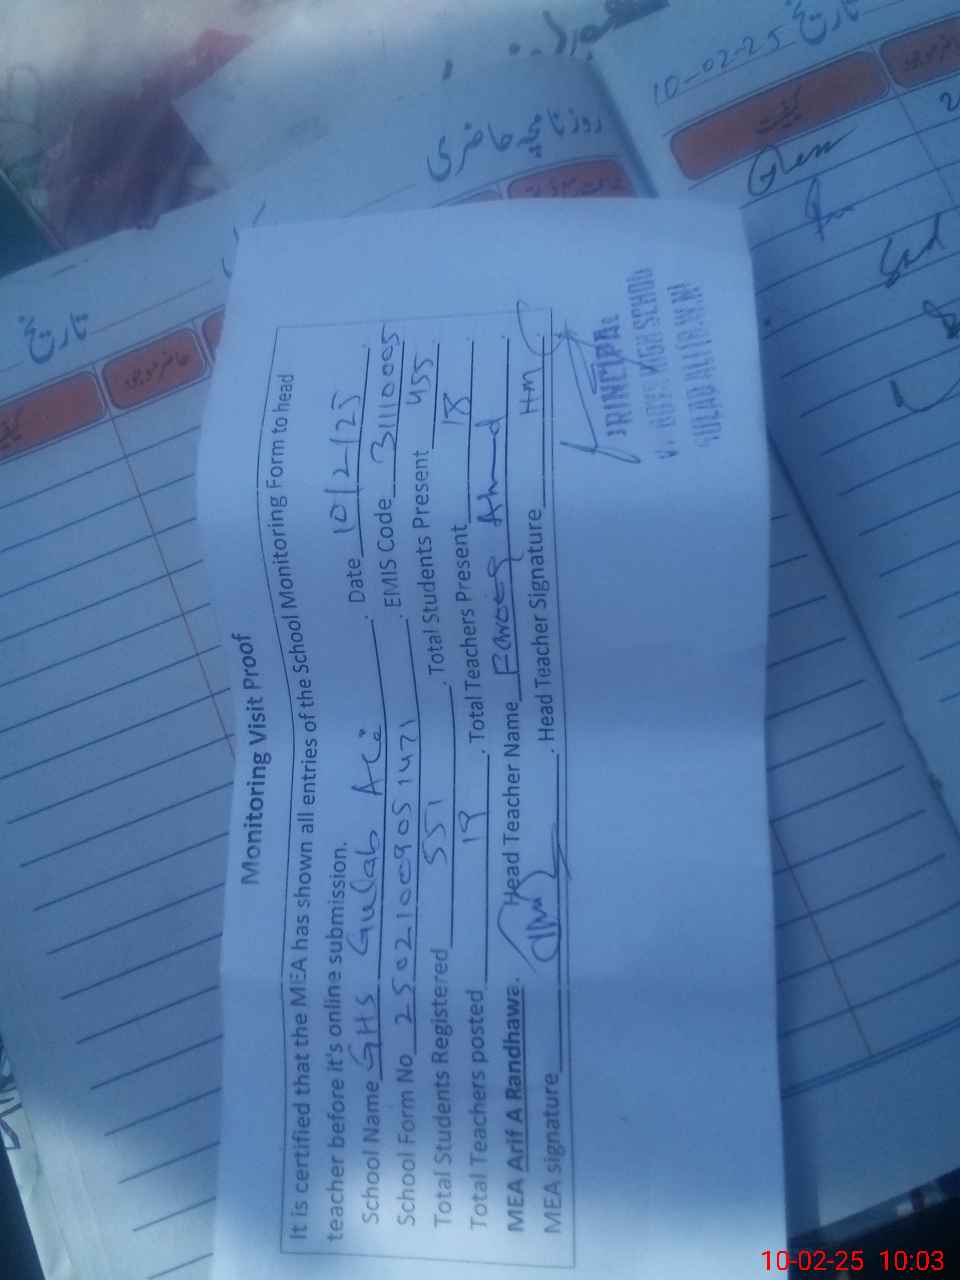 Monitoring Visit Proof
It is certified that the MEA has shown all entries of the School Monitoring Form to head
teacher before it's online submission.
School Name GHS Gulab Ali . Date 10/2/25 .
School Form No 250210090514​71 . EMIS Code 31110005
Total Students Registered 551 . Total Students Present 455 .
Total Teachers posted 19 . Total Teachers Present 18 .
MEA Arif A Randhawa. Head Teacher Name Farooq Ahmad .
MEA signature . Head Teacher Signature HM .
PRINCIPAL
HIGH SCHOOL
GULAB ALI
تاریخ
10-02-25
کیفیت
روزنامچہ حاضری
تاریخ
حاضر موجودہ
10-02-25 10:03